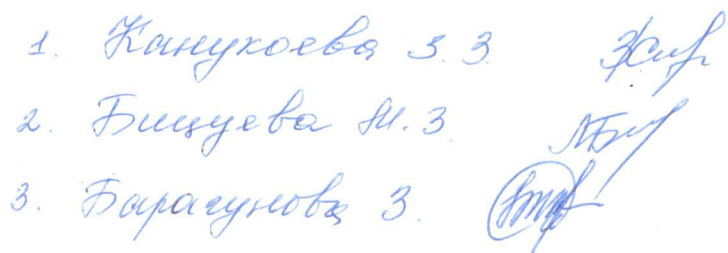 1. Канукоева З.З.
2. Бицуева М.З.
3. Барагунова З.